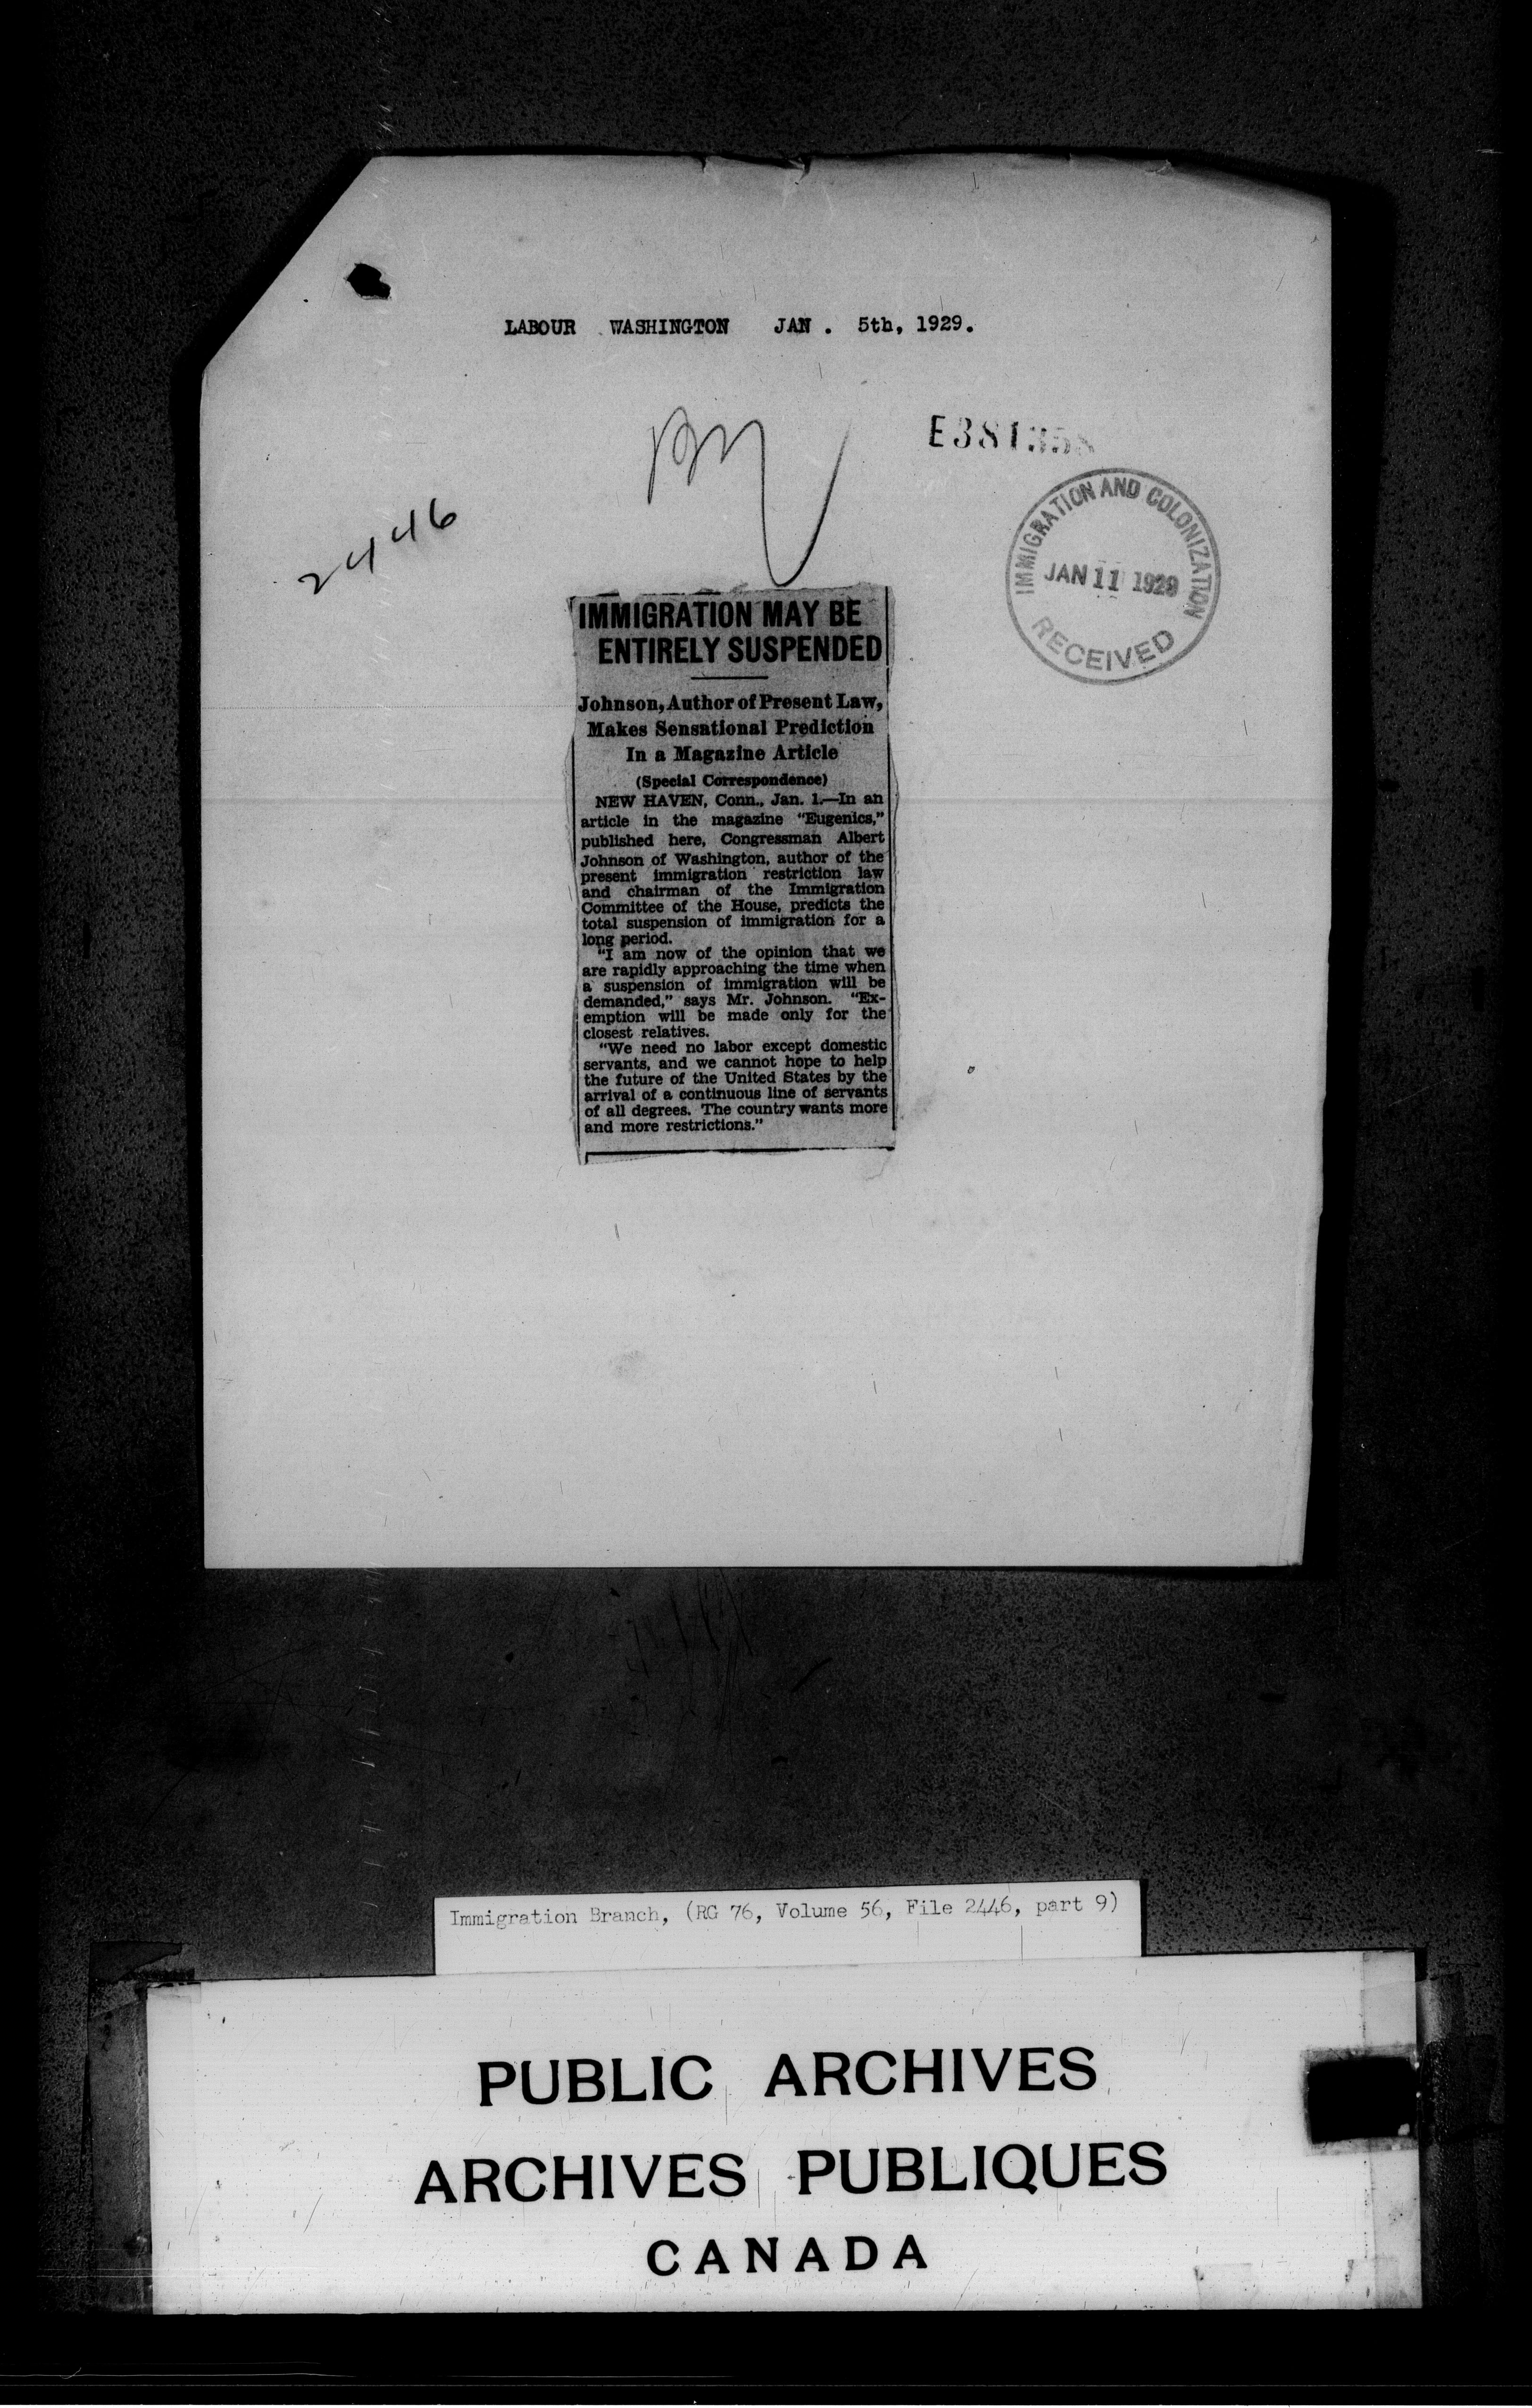 LABOUR WASHINGTON JAN . 5th, 1929.
E381358
2446
IMMIGRATION AND COLONIZATION
JAN 11 1929
RECEIVED
IMMIGRATION MAY BE
ENTIRELY SUSPENDED
Johnson, Author of Present Law,
Makes Sensational Prediction
In a Magazine Article
(Special Correspondence)
NEW HAVEN, Conn., Jan. 1.—In an
article in the magazine "Eugenics,"
published here, Congressman Albert
Johnson of Washington, author of the
present immigration restriction law
and chairman of the Immigration
Committee of the House, predicts the
total suspension of immigration for a
long period.
"I am now of the opinion that we
are rapidly approaching the time when
a suspension of immigration will be
demanded," says Mr. Johnson. "Ex-
emption will be made only for the
closest relatives.
"We need no labor except domestic
servants, and we cannot hope to help
the future of the United States by the
arrival of a continuous line of servants
of all degrees. The country wants more
and more restrictions."
Immigration Branch, (RG 76, Volume 56, File 2446, part 9)
PUBLIC ARCHIVES
ARCHIVES PUBLIQUES
CANADA